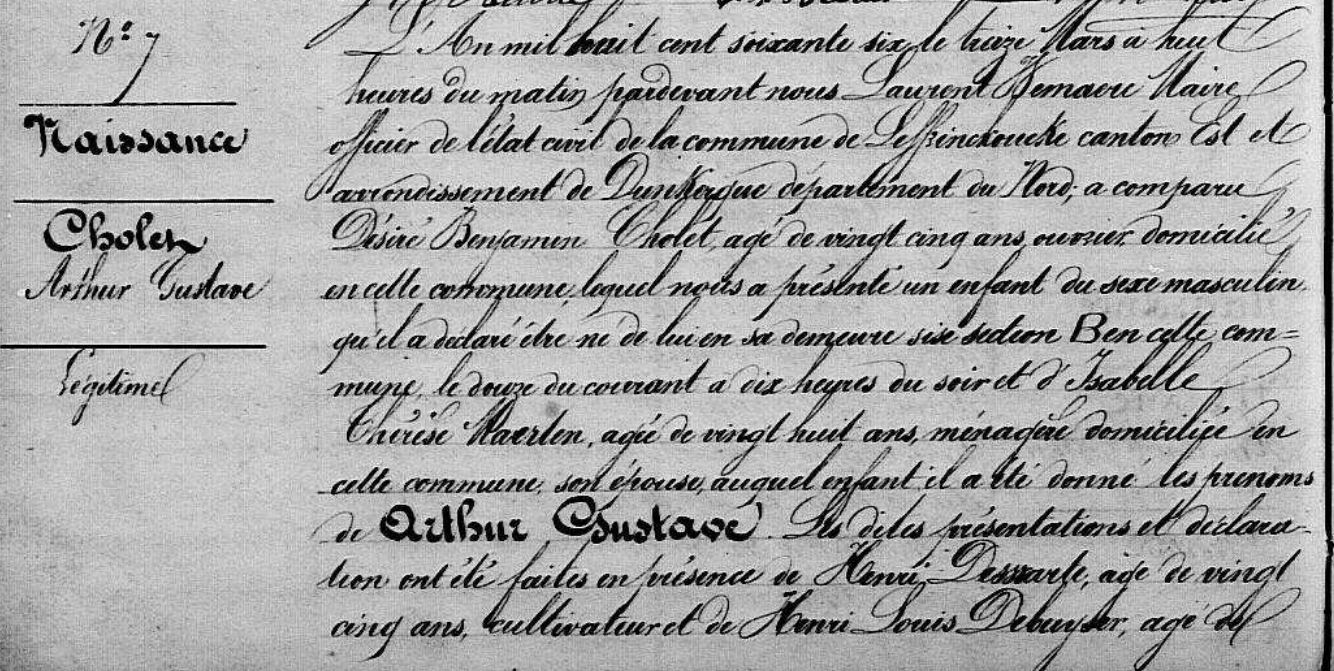 Nº 7
Naissance
Cholet
Arthur Gustave
Légitime
L'An mil huit cent soixante six le treize Mars à huit
heures du matin pardevant nous Laurent Hemaere Maire
officier de l'état civil de la commune de Leffrinckoucke canton Est et
arrondissement de Dunkerque département du Nord, a comparu
Désiré Benjamin Cholet, agé de vingt cinq ans, ouvrier domicilié
en celle commune, lequel nous a présenté un enfant du sexe masculin
qu'il a déclaré être né de lui en sa demeure sise section B en celle com=
mune, le douze du courant à dix heures du soir et d'Isabelle
Thérèse Maerten, agée de vingt huit ans, ménagère domiciliée en
cette commune, son épouse, auquel enfant il a été donné les prenoms
de Arthur Gustave. Les dites présentations et déclara-
tion ont été faites en présence de Henri Dessarte, agé de vingt
cinq ans, cultivateur et de Henri Louis Debuyser, agé de